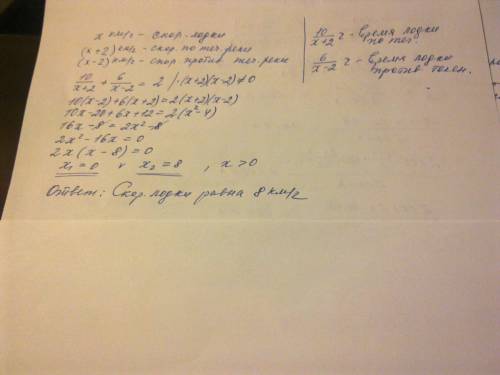 x км/ч – скор. лодки
(x+2) км/ч – скор. по теч. реки
(x-2) км/ч – скор против теч. реки
10/(x+2) + 6/(x-2) = 2 | ·(x+2)(x-2)≠0
10(x-2)+6(x+2)=2(x+2)(x-2)
10x-20+6x+12=2(x²-4)
16x-8=2x²-8
2x²-16x=0
2x(x-8)=0
x₁=0 v x₂=8 , x>0
Ответ: Скор. лодки равна 8 км/ч
10/(x+2) ч – время лодки
по теч.
6/(x-2) ч – время лодки
против течен.